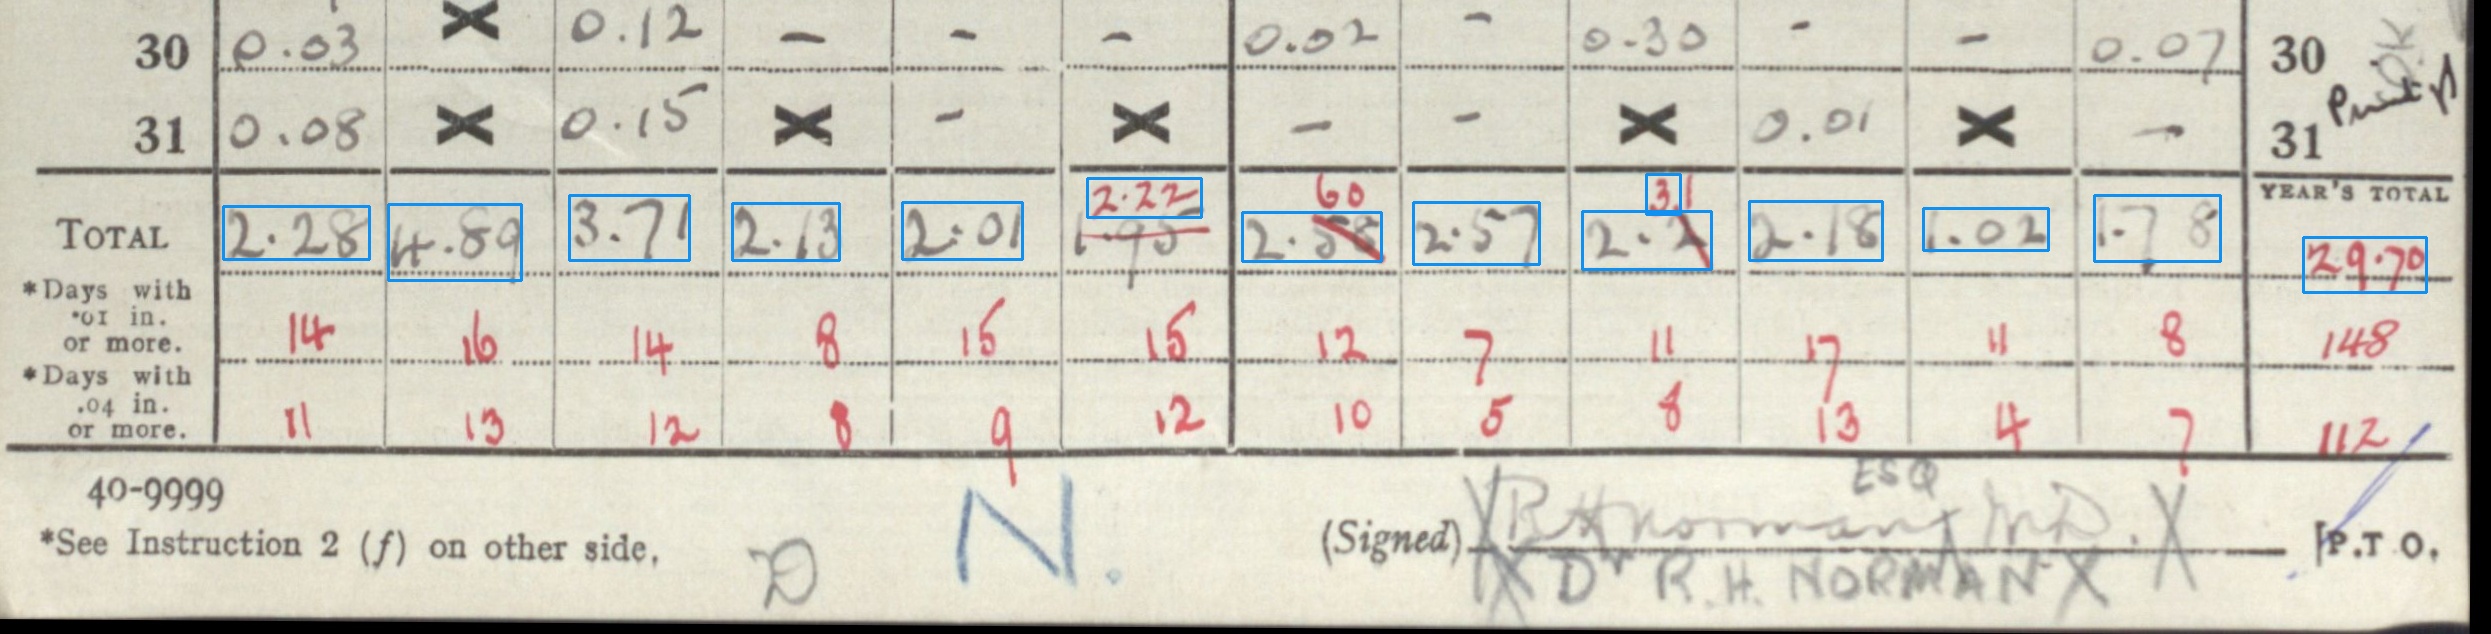 30 0.03 X 0.12 - - - 0.02 - 0.30 - - 0.07 30
31 0.08 X 0.15 X - X - - X 0.01 X - 31
60 31 YEAR'S TOTAL
2.22
TOTAL 2.28 4.89 3.71 2.13 2.01 1.95 2.58 2.57 2.2 2.18 1.02 1.78 29.70
*Days with
.01 in.
or more. 14 16 14 8 15 15 12 7 11 17 11 8 148
*Days with
.04 in.
or more. 11 13 12 8 9 12 10 5 8 13 4 7 112
40-9999
ESQ
*See Instruction 2 (f) on other side. D N. (Signed) R H Norman M.D. [P.T O.
Dr R.H. NORMAN